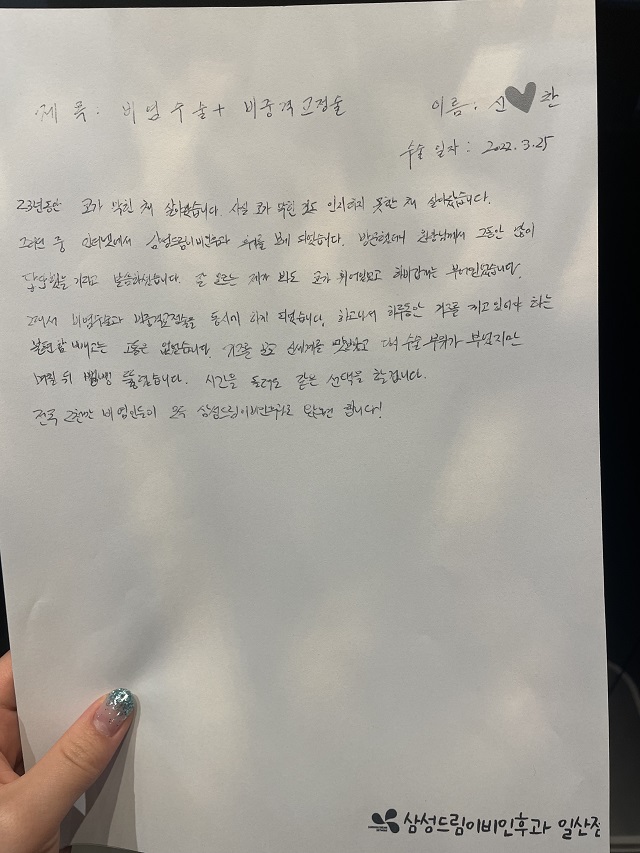 제 목. 비염수술+ 비중격교정술 이름. 신 한
수술 일자 : 2022. 3. 25
23년동안 코가 막힌 채 살아왔습니다. 사실 코가 막힌 것도 인지하지 못한 채 살아왔습니다.
그러던 중 인터넷에서 삼성드림이비인후과 후기를 보게 되었습니다. 방문했더니 원장님께서 그동안 많이
답답했을 거라고 말씀하셨습니다. 잘 모르는 제가 봐도 코가 휘어있었고 하비갑개는 부어있었습니다.
그래서 비염수술과 비중격교정술을 동시에 하게 되었습니다. 하고나서 하루동안 거즈를 끼고 있어야 하는
불편함 빼고는 고통은 없었습니다. 거즈를 뽑고 신세계를 맛보았고 다시 수술 부위가 부었지만
1주일 뒤 뻥뻥 뚫렸습니다. 시간을 돌려도 같은 선택을 할겁니다.
전국 2천만 비염인들이 모두 삼성드림이비인후과로 왔으면 합니다!
삼성드림이비인후과 일산점